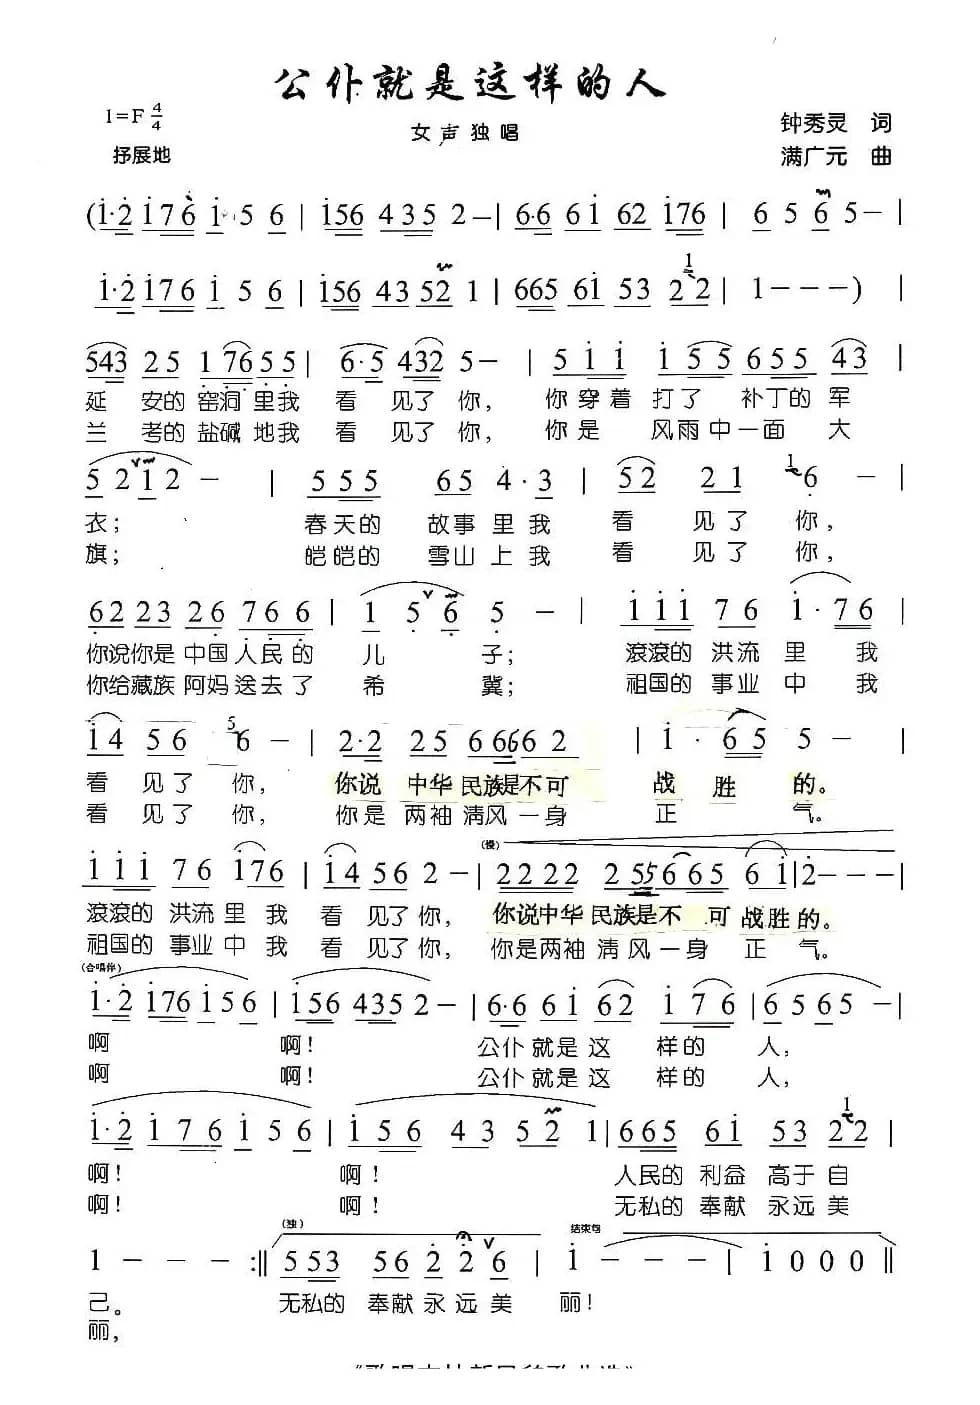 公仆就是这样的人
1=F 4/4
女声独唱
钟秀灵 词
抒展地
满广元 曲
(1·2 176 1 5 6 | 156 435 2- | 6·6 61 62 176 | 6 5 6 5- |
1·2 176 1 5 6 | 156 4352 1 | 665 61 53 22 | 1---) |
543 25 1 7655 | 6·5 432 5- | 5 1 1 1 55 655 43 |
延 安的 窑洞里我 看 见了 你， 你穿着 打了 补丁的 军
兰 考的 盐碱地我 看 见了 你， 你是 风雨中一面 大
5 2 1 2 - | 555 65 4·3 | 52 21 6- |
衣； 春天的 故事里我 看 见了 你，
旗； 皑皑的 雪山上我 看 见了 你，
62 23 26 766 | 1 5 6 5 - | 111 76 1·76 |
你说你是中国人民的 儿 子； 滚滚的 洪流里 我
你给藏族阿妈送去了 希 冀； 祖国的 事业中 我
14 56 6- | 2·2 25 666662 | 1·65 5- |
看 见了 你， 你说 中华 民族是不可 战 胜 的。
看 见了 你， 你是 两袖清风一身 正 气。
(慢)
111 76 176 | 14 56 2- | 2222 255665 61 | 2--- |
滚滚的 洪流里 我 看 见了你， 你说中华 民族是不 可 战胜的。
祖国的 事业中 我 看 见了 你， 你是两袖清风一身 正 气。
(合唱伴)
1·2 176 156 | 156 4352- | 6·6 61 62 176 | 6565- |
啊 啊！ 公仆就是这 样的 人，
啊 啊！ 公仆就是这 样的 人，
1·2 176 156 | 156 43 52 1 | 665 61 53 22 |
啊！ 啊！ 人民的 利益 高于自
啊！ 啊！ 无私的 奉献 永远美
(独) 结束句
1 - - - :‖ 553 56 2 2 6 | 1 - - - | 1000 ‖
己。 无私的 奉献永远美 丽！
丽，